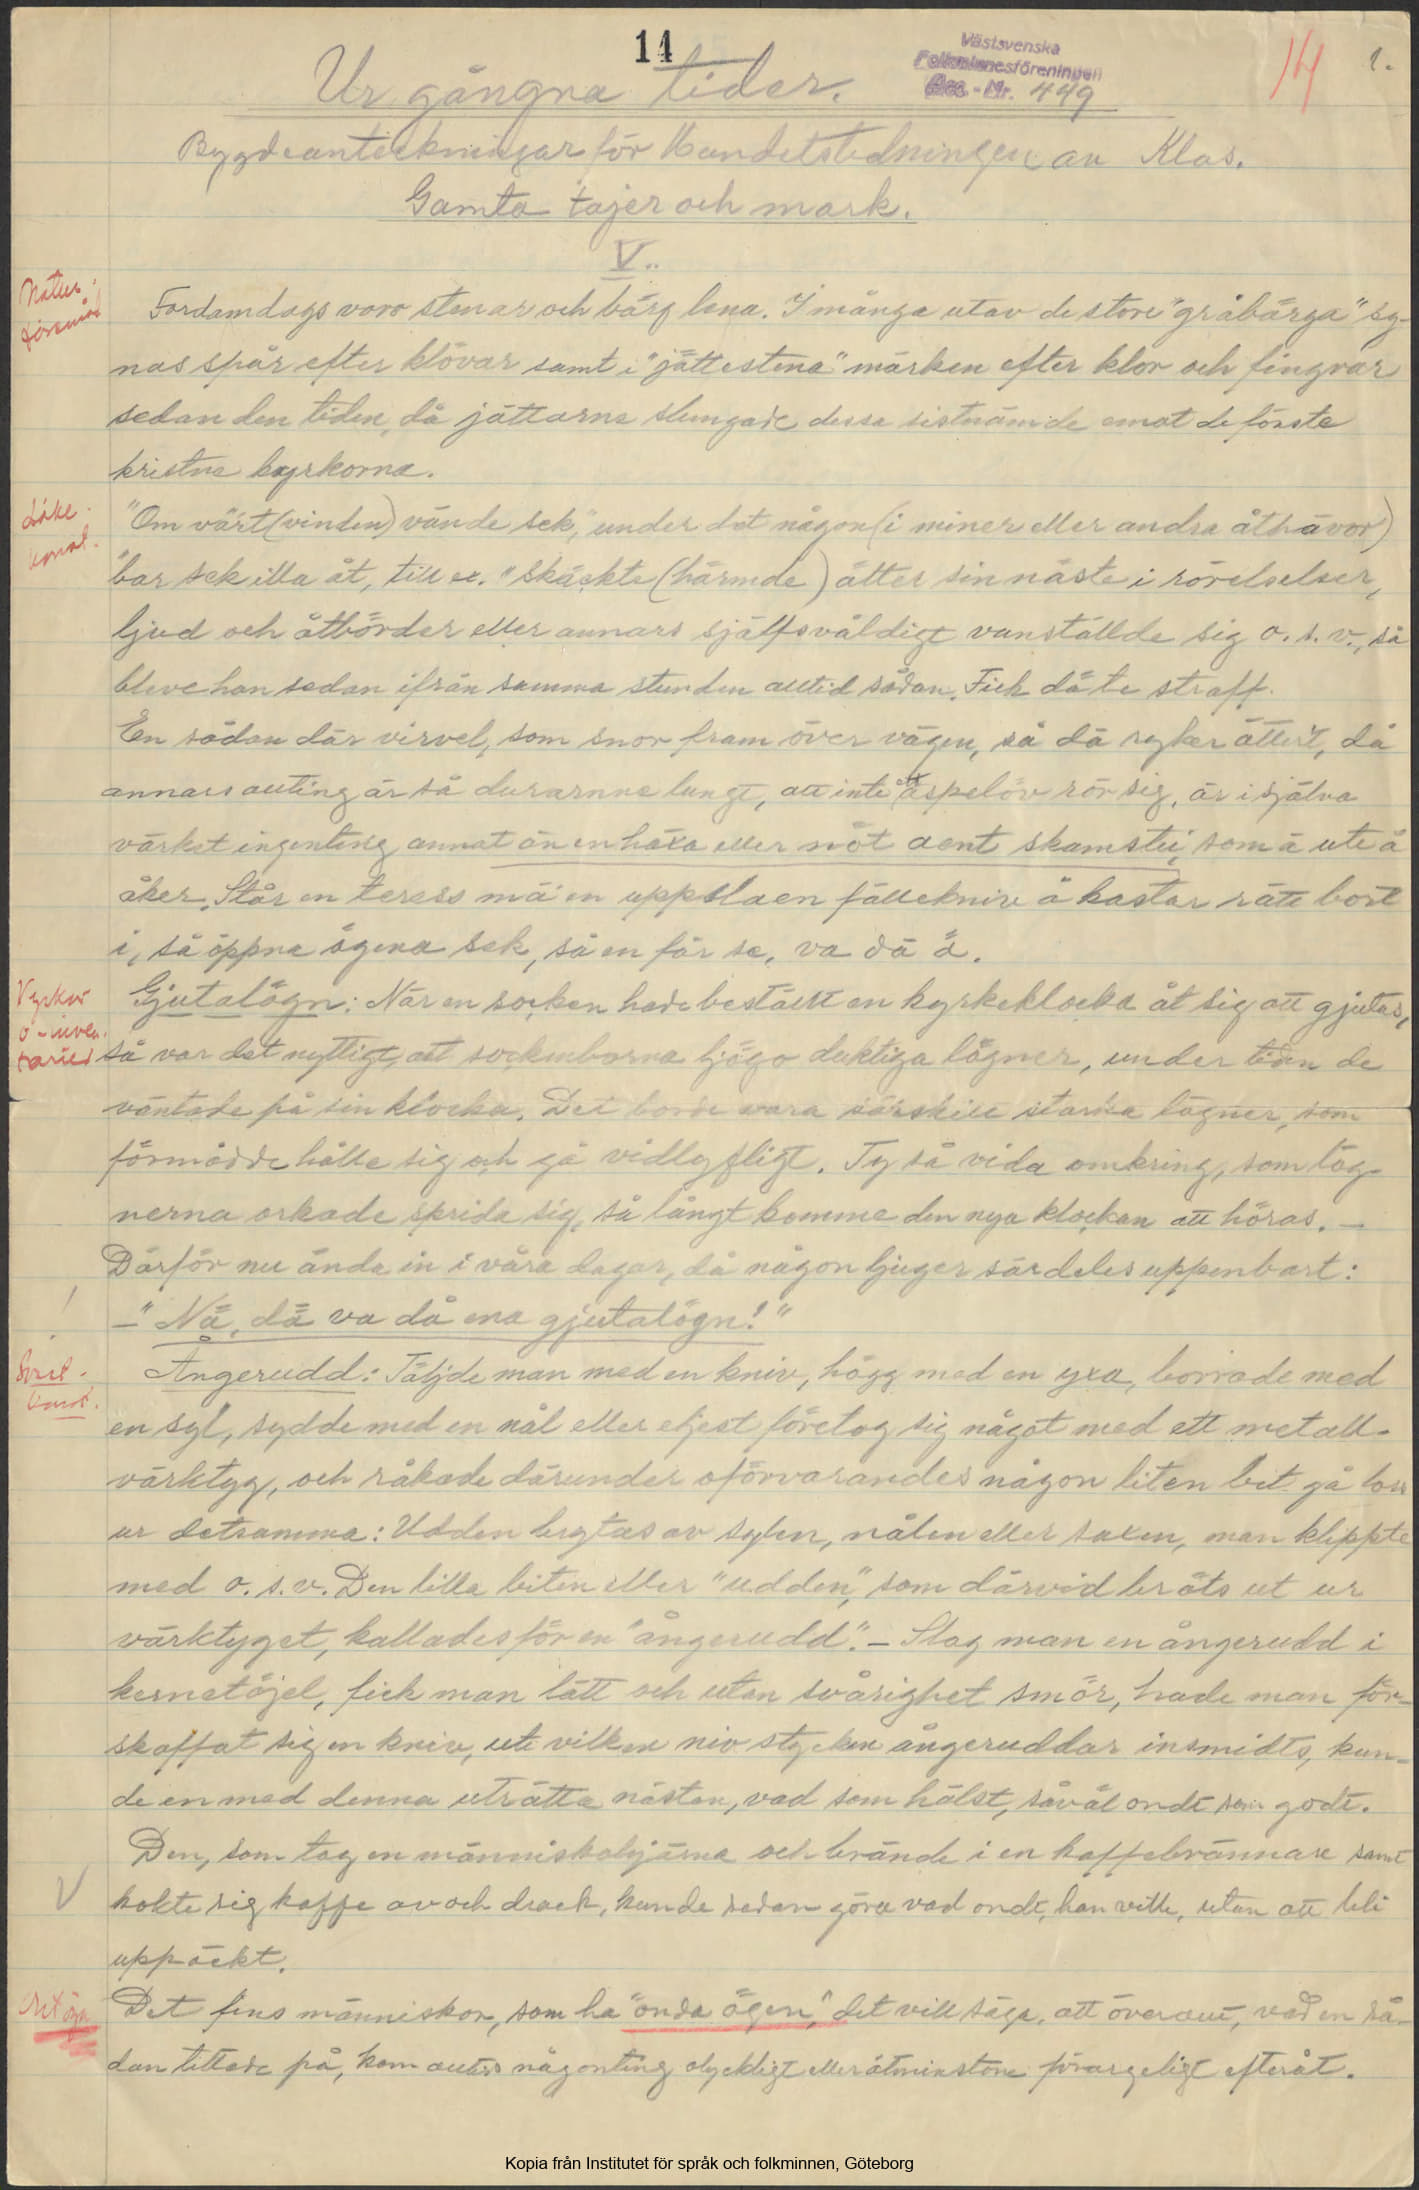 14
Västsvenska
Folkminnesföreningen
Acc.-Nr. 449
14
1.
Ur gångna tider.
Bygdeanteckningar för Handelstidningen av Klas.
Gamla tajer och mark.
V.
Natur-
föremål
Fordomdags voro stenar och bärg lena. I många utav de store "gråbärga" sy-
nas spår efter klövar samt i "jättestena" märken efter klor och fingrar
sedan den tiden, då jättarne slungade dessa sistnämnde emot de förste
kristne kyrkorna.
Läke-
konst.
"Om värt (vinden) vände sek," under det någon (i miner eller andra åthävor)
"bar sek illa åt, till ex. "skäckte (härmde) ätter sin näste i rörelselser,
ljud och åtbörder eller annars själfsvåldigt vanställde sig o. s. v., så
bleve han sedan ifrån samma stunden alltid sådan. Fick dä te straff.
En sådan där virvel, som snor fram över vägen, så dä ryker ätter't, då
annars allting är så durarnne lungt, att inte ett aspelöv rör sig, är i själva
värket ingenting annat än en häxa eller nöt aent skamstei, som ä ute å
åker. Står en teress mä en uppslaen fällekniv å kastar rätt bort
i, så öppna ögena sek, så en får se, va dä ä.
Kyrkor
o-inven-
tarier
Gjutalögn: När en socken hade beställt en kyrkeklocka åt sig att gjutas,
så var det nyttigt, att socknborna ljögo duktiga lögner, under tiden de
väntade på sin klocka. Det borde vara särskilt starka lögner, som
förmådde hålla sig och gå vidlyftligt. Ty så vida omkring, som lög-
nerna orkade sprida sig, så långt komme den nya klockan att höras. —
Därför nu ända in i våra dagar, då någon ljuger särdeles uppenbart:
— "Nä, dä va då ena gjutalögn!"
Svart-
konst.
Ångerudd: Täljde man med en kniv, högg med en yxa, borrade med
en syl, sydde med en nål eller eljest företog sig något med ett metall-
värktyg, och råkade därunder oförvarandes någon liten bit gå loss
ur detsamma: Udden brytas av sylen, nålen eller saxen, man klippte
med o. s. v. Den lilla biten eller "udden", som därvid bröts ut ur
värktyget, kallades för en "ångerudd". — Slog man en ångerudd i
kernetöjel, fick man lätt och utan svårighet smör, hade man för-
skaffat sig en kniv, uti vilken nio stycken ångeruddar insmidts, kun-
de en med denna uträtta nästan, vad som hälst, såväl ondt som godt.
Den, som tog en människohjärna och brände i en kaffebrännare samt
V
kokte sig kaffe av och drack, kunde sedan göra vad ondt, han ville, utan att bli
uppäckt.
Det fins människor, som ha "onda ögen," det vill säga, att överallt, vad en så-
dan tittade på, kom alltid någonting olyckligt eller åtminstone förargeligt efteråt.
Kopia från Institutet för språk och folkminnen, Göteborg